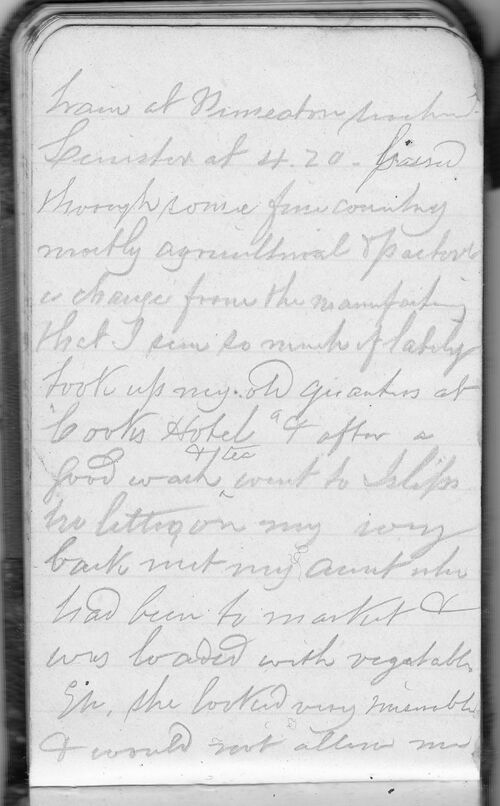 train at Nuneaton reached
Leicester at 4.20 - passed
through some fine country
mostly agricultural & pastoral
a change from the manufacturing
that I seen so much of lately
took up my old quarters at
Cooks Hotel & after a
good wash & tea went to
no letters on my way
back met my aunt who
had been to market &
was loaded with vegetables
she looked very miserable
& would not allow me